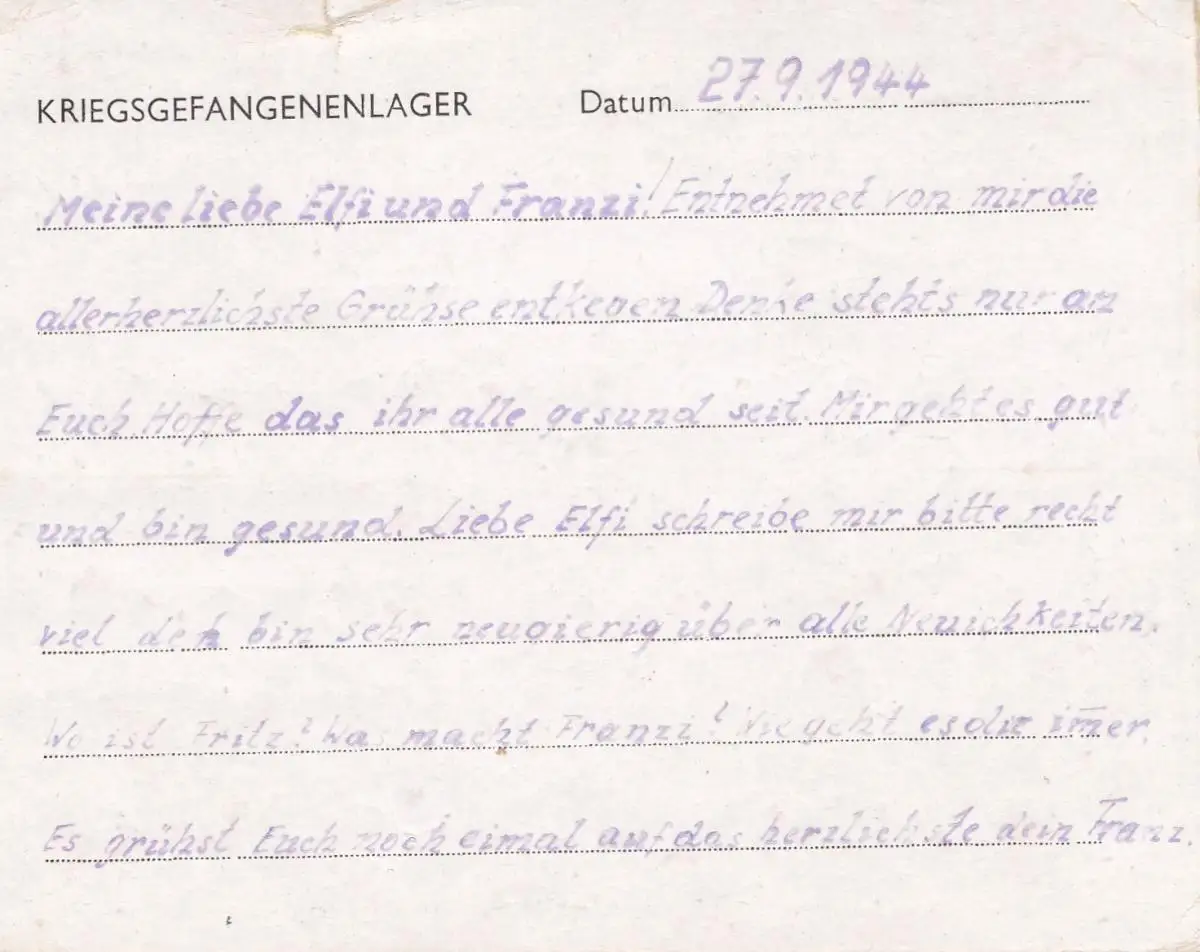 KRIEGSGEFANGENENLAGER Datum 27.9.1944
Meine liebe Elfi und Franzi! Entnehmet von mir die
allerherzlichste Grühse entkegen Denke stehts nur an
Euch. Hoffe das ihr alle gesund seit. Mir geht es gut
und bin gesund. Liebe Elfi schreibe mir bitte recht
viel den bin sehr neugierig über alle Neuichkeiten.
Wo ist Fritz? Was macht Franzi? Wie geht es dir im̅er.
Es grühst Euch noch eimal auf das herzlichste dein Franz.